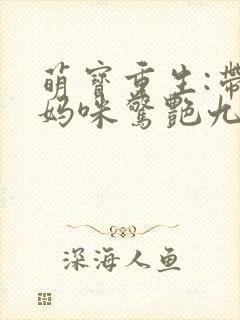 萌寶重生:帶
媽咪驚艷九
深海人鱼